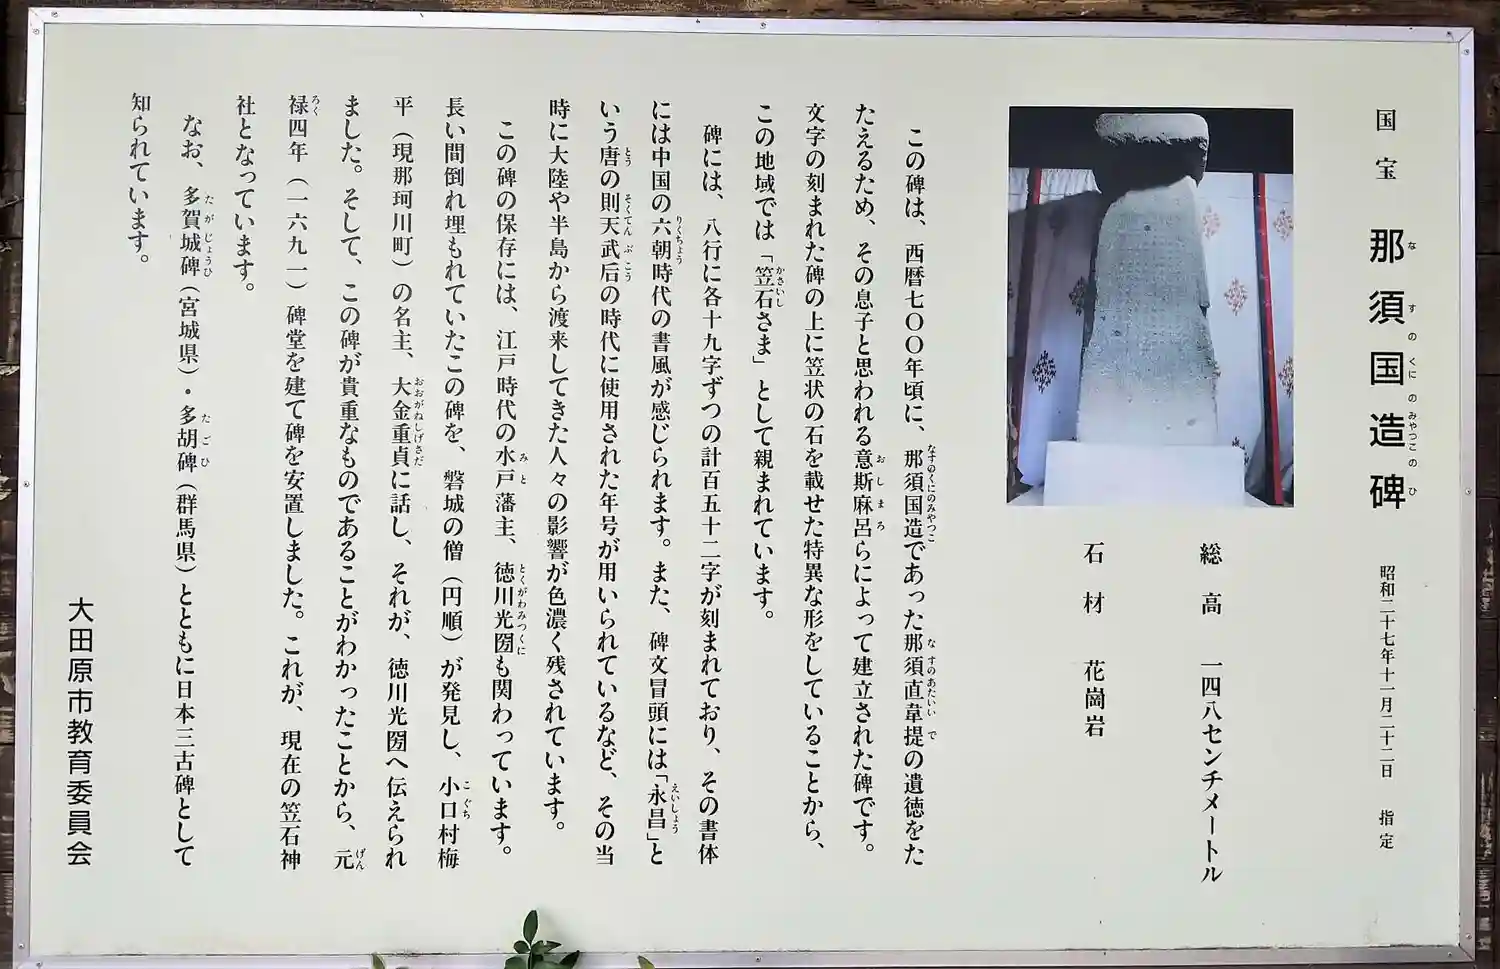 国宝 那須国造碑 昭和二十七年十一月二十二日 指定
総高 一四八センチメートル
石材 花崗岩
この碑は、西暦七〇〇年頃に、那須国造であった那須直韋提の遺徳をた
たえるため、その息子と思われる意斯麻呂らによって建立された碑です。
文字の刻まれた碑の上に笠状の石を載せた特異な形をしていることから、
この地域では「笠石さま」として親まれています。
碑には、八行に各十九字ずつの計百五十二字が刻まれており、その書体
には中国の六朝時代の書風が感じられます。また、碑文冒頭には「永昌」と
いう唐の則天武后の時代に使用された年号が用いられているなど、その当
時に大陸や半島から渡来してきた人々の影響が色濃く残されています。
この碑の保存には、江戸時代の水戸藩主、徳川光圀も関わっています。
長い間倒れ埋もれていたこの碑を、磐城の僧（円順）が発見し、小口村梅
平（現那珂川町）の名主、大金重貞に話し、それが、徳川光圀へ伝えられ
ました。そして、この碑が貴重なものであることがわかったことから、元
禄四年（一六九一）碑堂を建て碑を安置しました。これが、現在の笠石神
社となっています。
なお、多賀城碑（宮城県）・多胡碑（群馬県）とともに日本三古碑として
知られています。
大田原市教育委員会